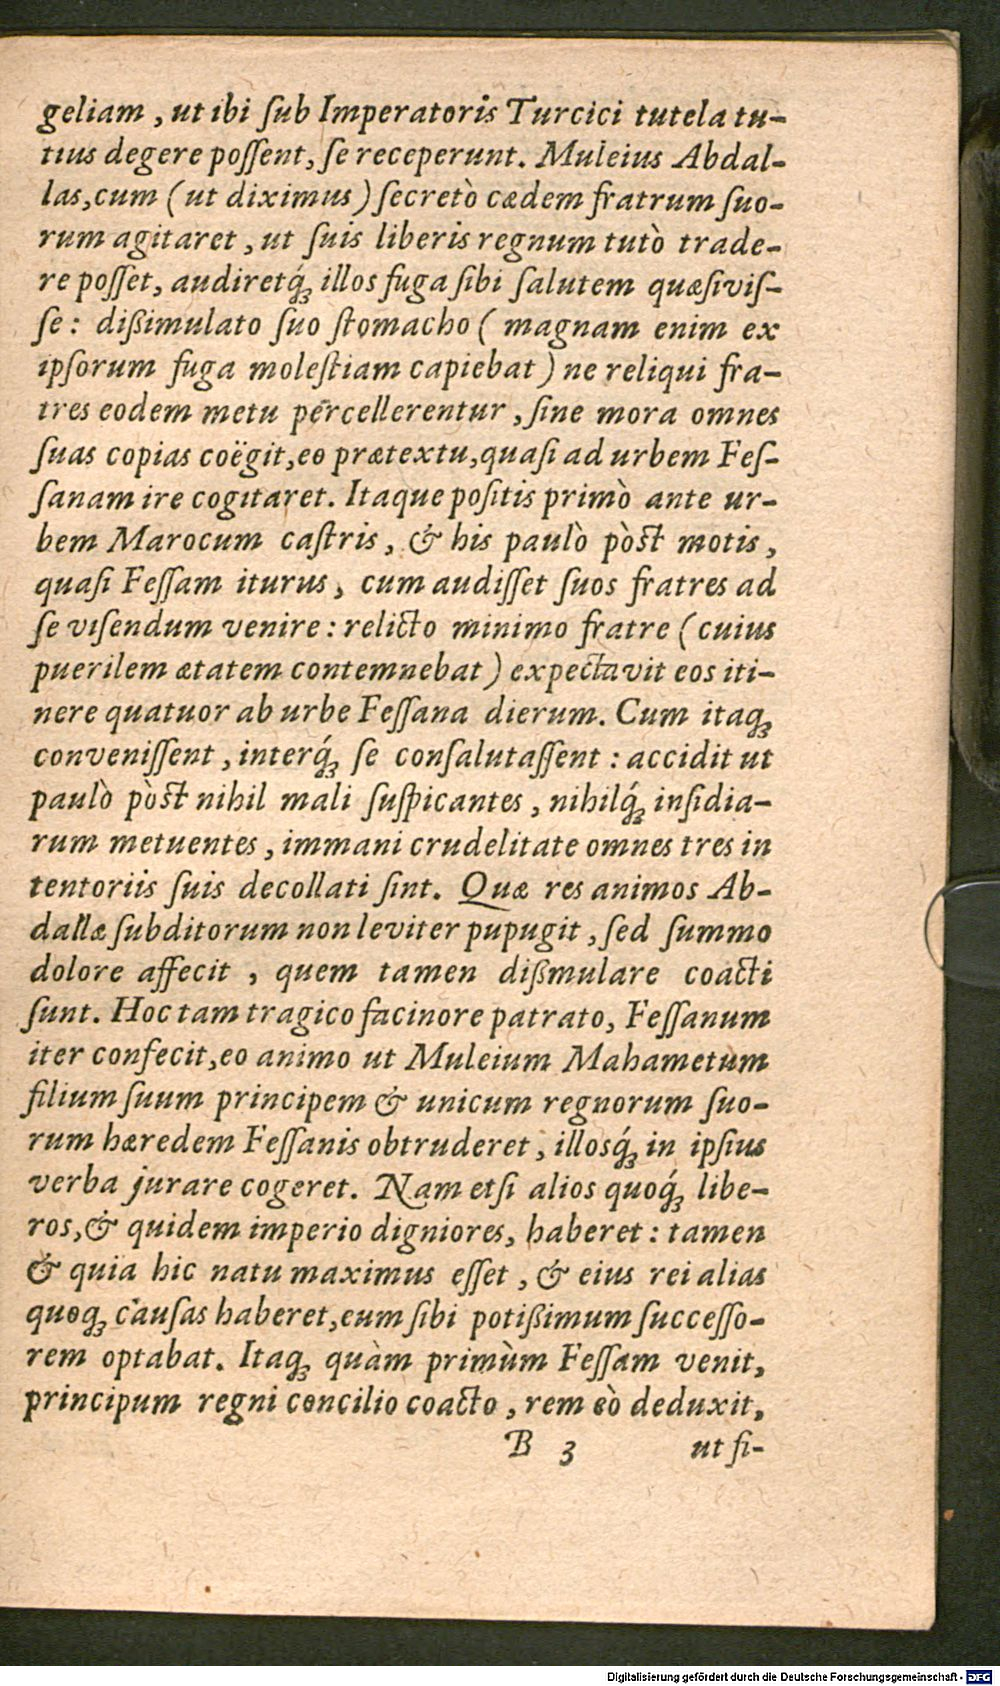 geliam, ut ibi ſub Imperatoris Turcici tutela tu-
tius degere poſſent, ſe receperunt. Muleius Abdal-
las, cum (ut diximus) ſecretò cædem fratrum ſuo-
rum agitaret, ut ſuis liberis regnum tutò trade-
re poſſet, audiretq́ꝫ illos fuga ſibi ſalutem quæſiviſ-
ſe: dißimulato ſuo ſtomacho (magnam enim ex
ipſorum fuga moleſtiam capiebat) ne reliqui fra-
tres eodem metu percellerentur, ſine mora omnes
ſuas copias coëgit, eo prætextu, quaſi ad urbem Feſ-
ſanam ire cogitaret. Itaque poſitis primò ante ur-
bem Marocum caſtris, & his paulò pòſt motis,
quaſi Feſſam iturus, cum audiſſet ſuos fratres ad
ſe viſendum venire: relicto minimo fratre (cuius
puerilem ætatem contemnebat) expectavit eos iti-
nere quatuor ab urbe Feſſana dierum. Cum itaqꝫ
conveniſſent, interq́ꝫ ſe conſalutaſſent: accidit ut
paulò pòſt nihil mali ſuſpicantes, nihilq́ꝫ inſidia-
rum metuentes, immani crudelitate omnes tres in
tentoriis ſuis decollati ſint. Quæ res animos Ab-
dallæ ſubditorum non leviter pupugit, ſed ſummo
dolore affecit, quem tamen dißmulare coacti
ſunt. Hoc tam tragico facinore patrato, Feſſanum
iter confecit, eo animo ut Muleium Mahametum
filium ſuum principem & unicum regnorum ſuo-
rum hæredem Feſſanis obtruderet, illosq́ꝫ in ipſius
verba jurare cogeret. Nam etſi alios quoq́ꝫ libe-
ros, & quidem imperio digniores, haberet: tamen
& quia hic natu maximus eſſet, & eius rei alias
quoqꝫ cauſas haberet, eum ſibi potißimum ſucceſſo-
rem optabat. Itaqꝫ quàm primùm Feſſam venit,
principum regni concilio coacto, rem eò deduxit,
B 3 ut ſi-
Digitalisierung gefördert durch die Deutsche Forschungsgemeinschaft - DFG